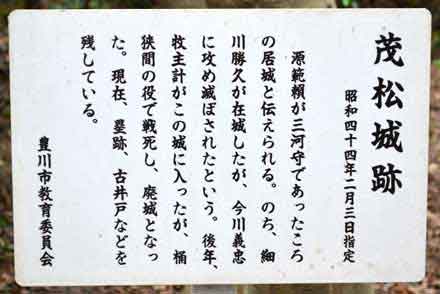 茂松城跡
昭和四十四年二月三日指定
源範頼が三河守であったころ
の居城と伝えられる。のち、細
川勝久が在城したが、今川義忠
に攻め滅ぼされたという。後年、
牧主計がこの城に入ったが、桶
狭間の役で戦死し、廃城となっ
た。現在、塁跡、古井戸などを
残している。
豊川市教育委員会